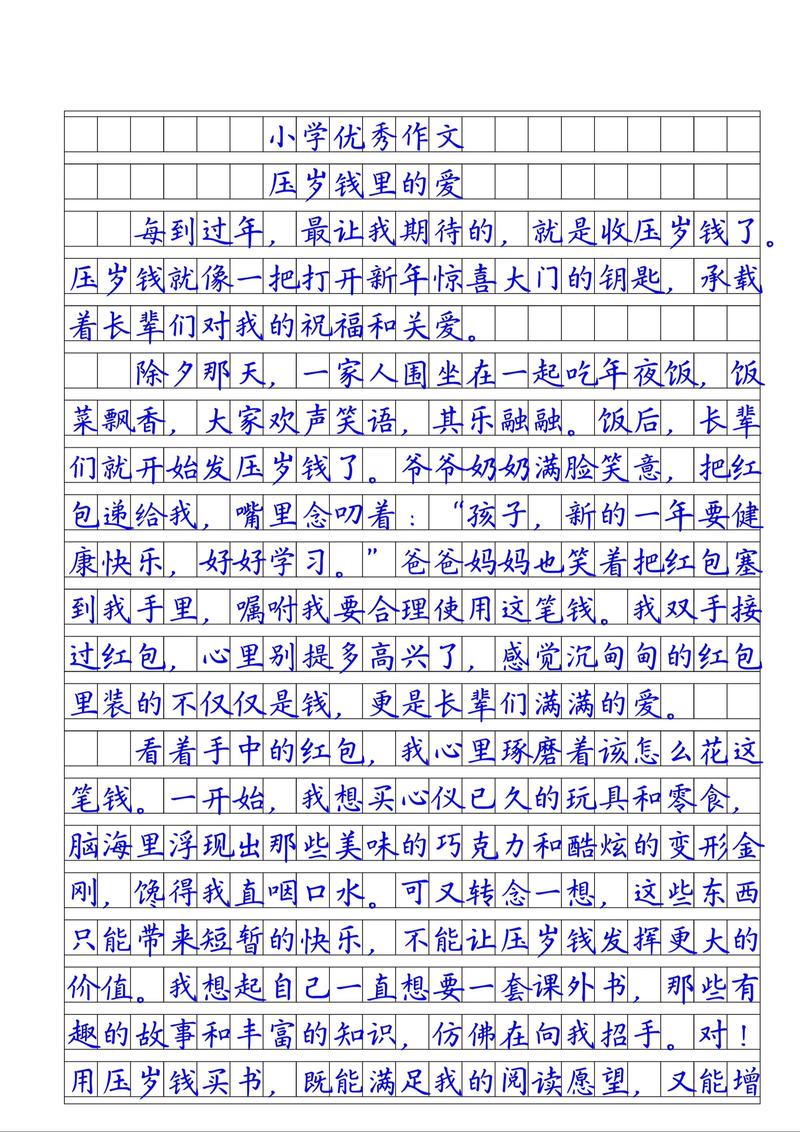 小学优秀作文
压岁钱里的爱
每到过年，最让我期待的，就是收压岁钱了。
压岁钱就像一把打开新年惊喜大门的钥匙，承载
着长辈们对我的祝福和关爱。
除夕那天，一家人围坐在一起吃年夜饭，饭
菜飘香，大家欢声笑语，其乐融融。饭后，长辈
们就开始发压岁钱了。爷爷奶奶满脸笑意，把红
包递给我，嘴里念叨着：“孩子，新的一年要健
康快乐，好好学习。”爸爸妈妈也笑着把红包塞
到我手里，嘱咐我要合理使用这笔钱。我双手接
过红包，心里别提多高兴了，感觉沉甸甸的红包
里装的不仅仅是钱，更是长辈们满满的爱。
看着手中的红包，我心里琢磨着该怎么花这
笔钱。一开始，我想买心仪已久的玩具和零食，
脑海里浮现出那些美味的巧克力和酷炫的变形金
刚，馋得我直咽口水。可又转念一想，这些东西
只能带来短暂的快乐，不能让压岁钱发挥更大的
价值。我想起自己一直想要一套课外书，那些有
趣的故事和丰富的知识，仿佛在向我招手。对！
用压岁钱买书，既能满足我的阅读愿望，又能增